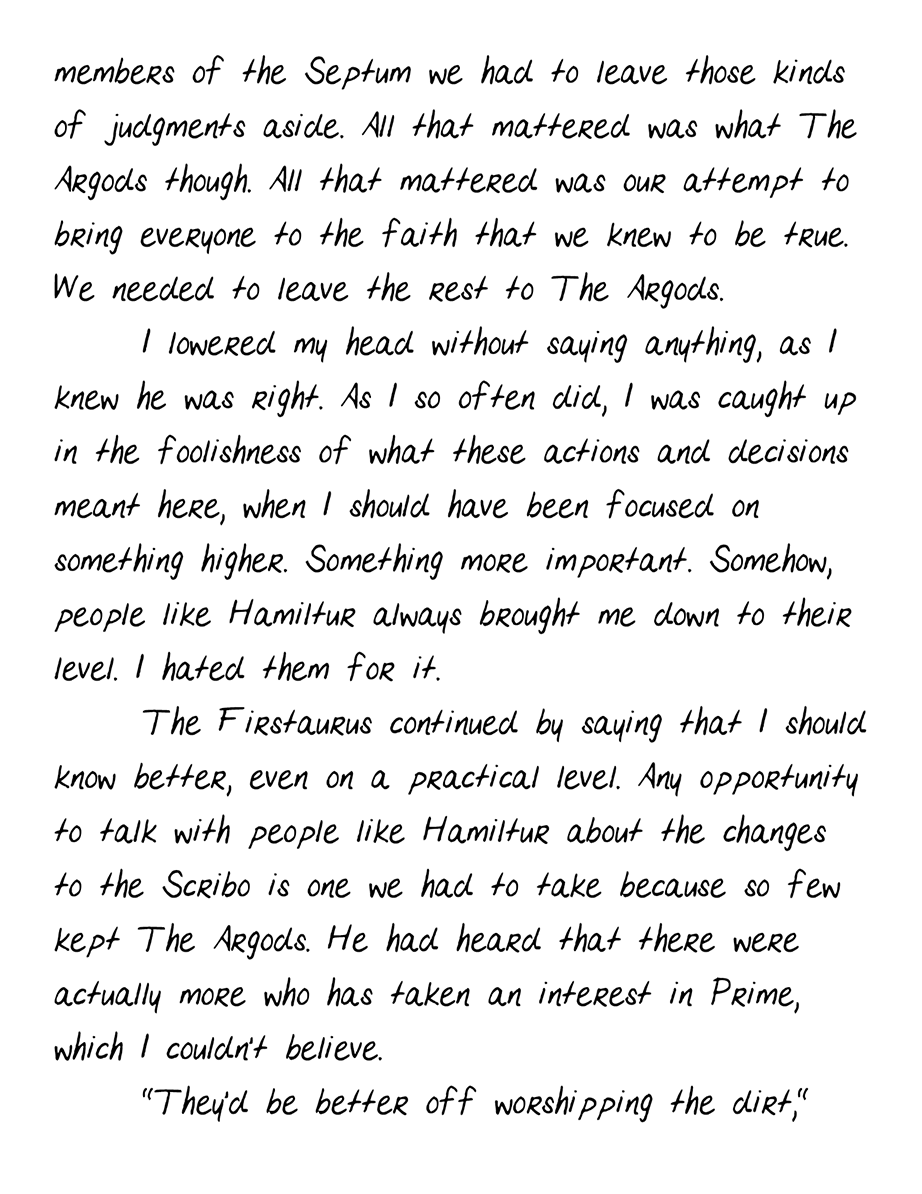 members of the Septum we had to leave those kinds
of judgments aside. All that mattered was what The
Argods though. All that mattered was our attempt to
bring everyone to the faith that we knew to be true.
We needed to leave the rest to The Argods.
I lowered my head without saying anything, as I
knew he was right. As I so often did, I was caught up
in the foolishness of what these actions and decisions
meant here, when I should have been focused on
something higher. Something more important. Somehow,
people like Hamiltur always brought me down to their
level. I hated them for it.
The Firstaurus continued by saying that I should
know better, even on a practical level. Any opportunity
to talk with people like Hamiltur about the changes
to the Scribo is one we had to take because so few
kept The Argods. He had heard that there were
actually more who has taken an interest in Prime,
which I couldn't believe.
“They'd be better off worshipping the dirt,“